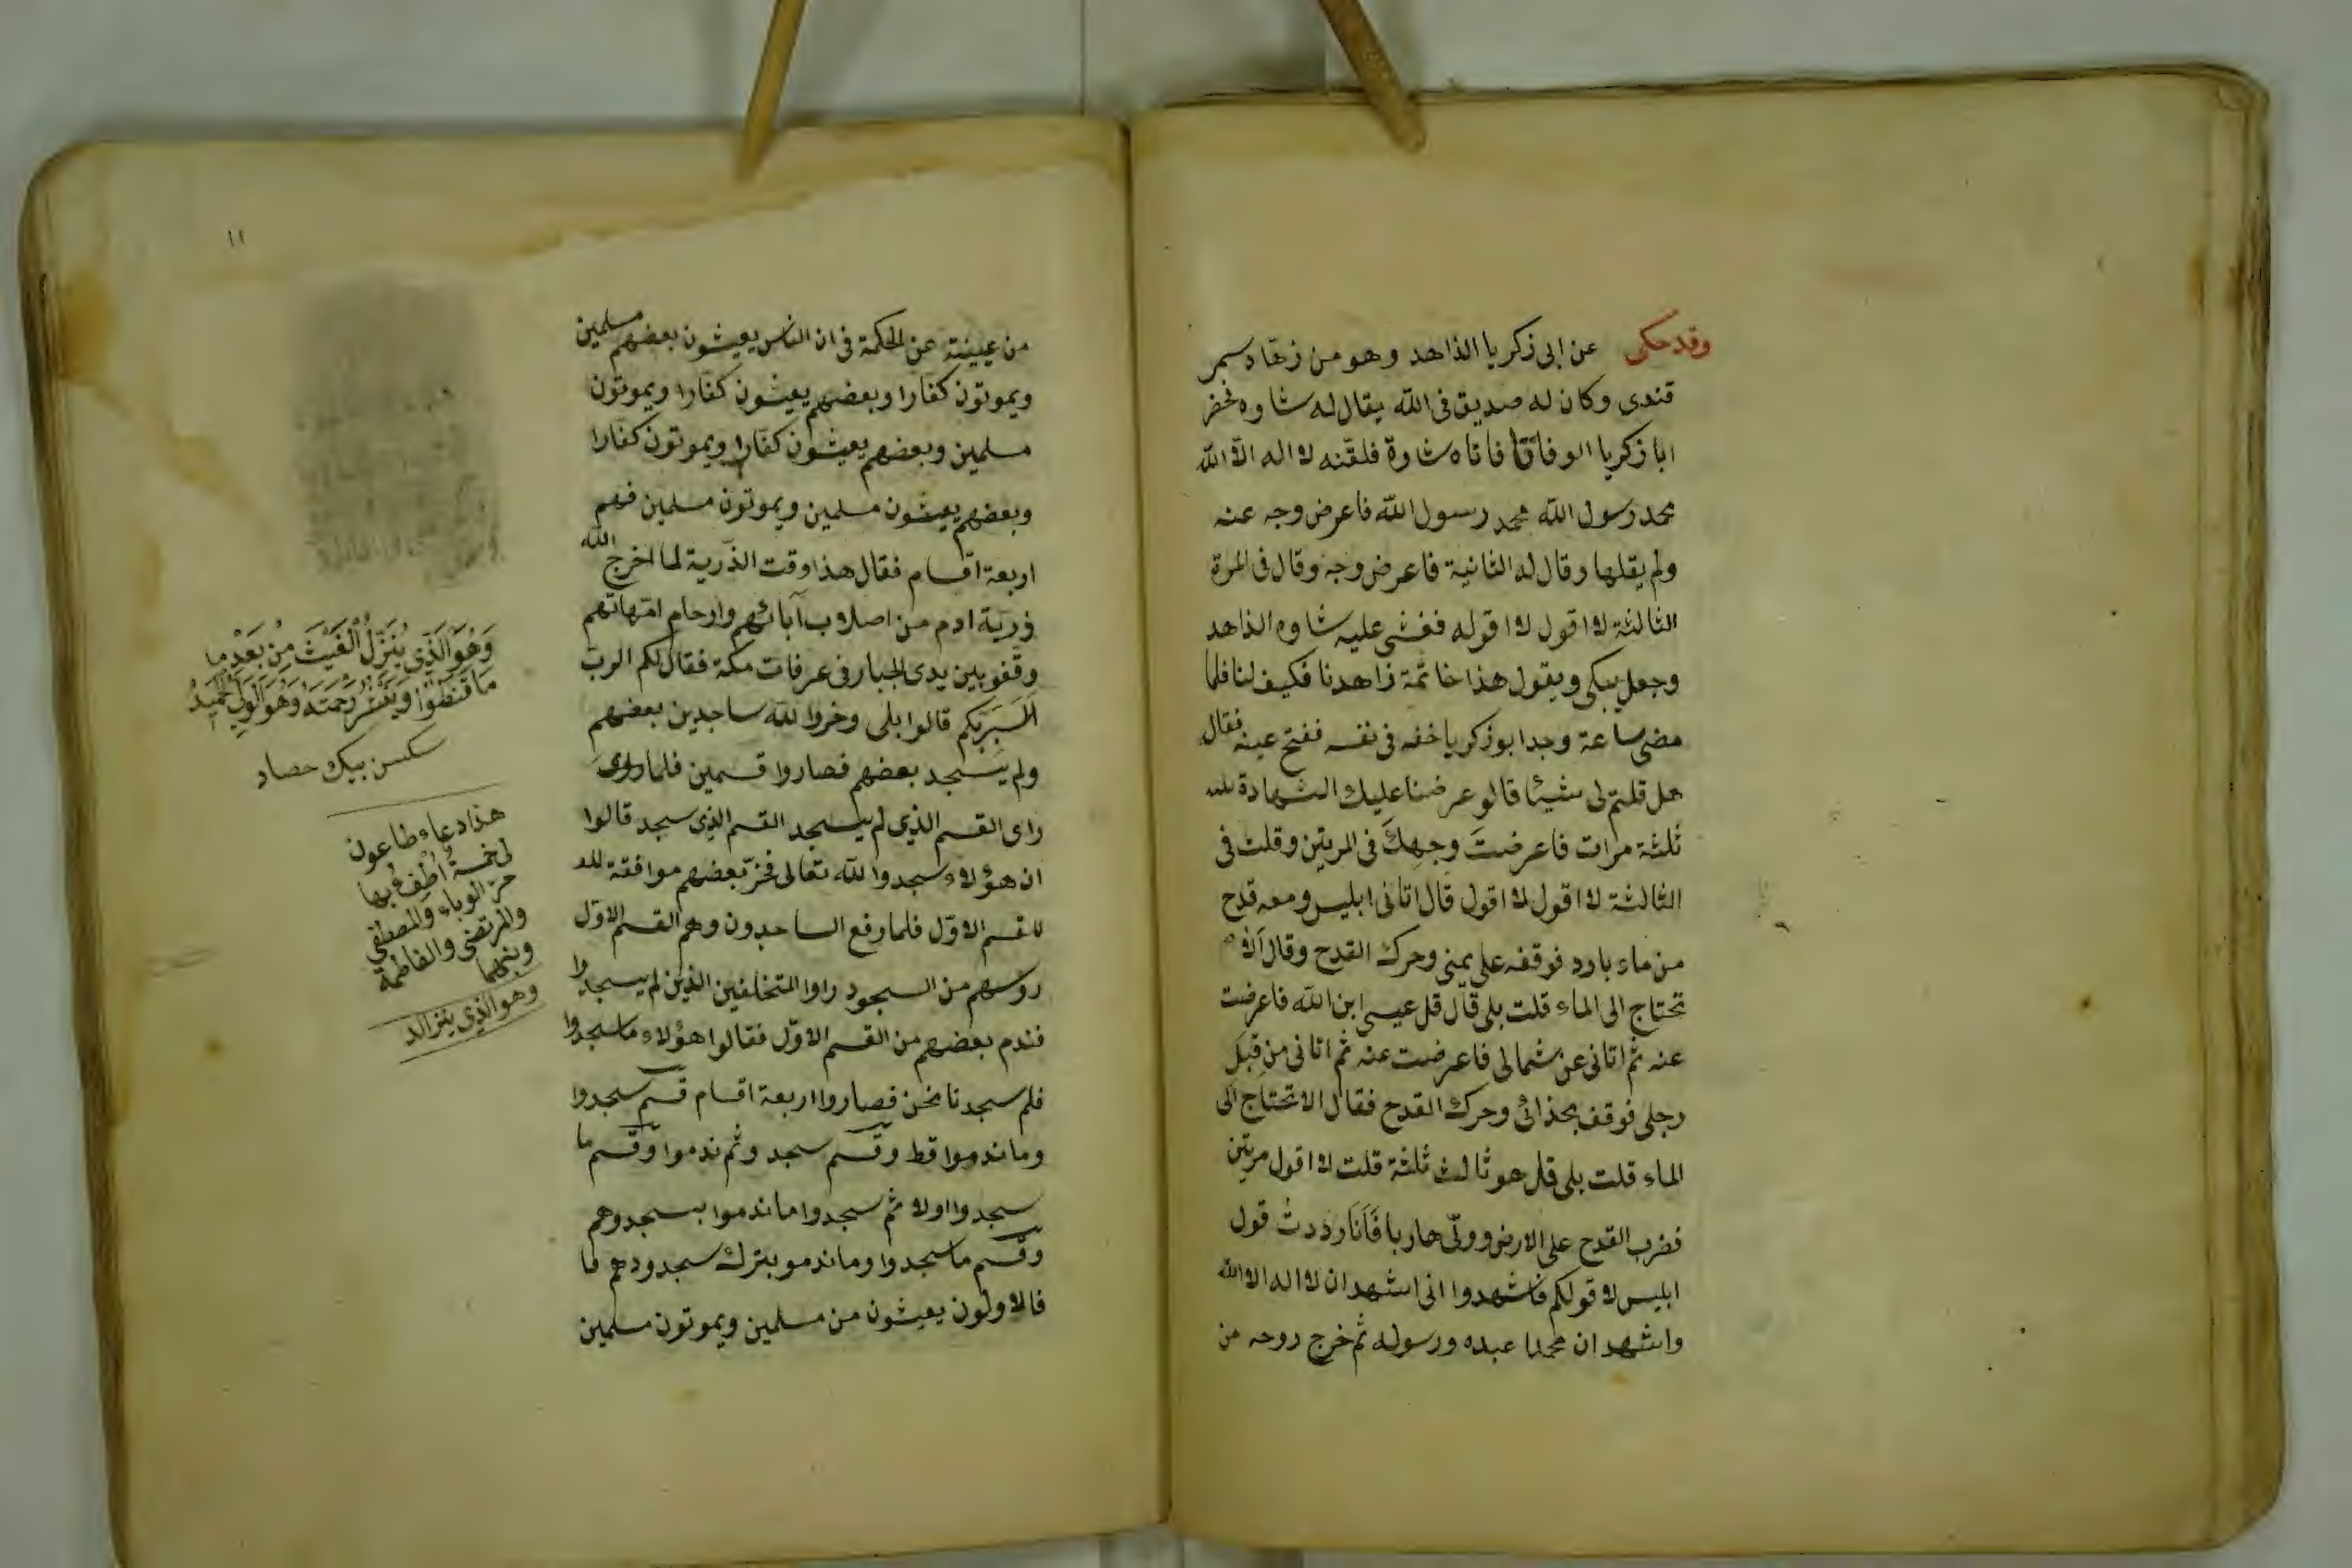 وقد حكى عن ابى زكريا الذاهد وهو من زهاد سمر
قندى وكان له صديق فى الله يقال له شاوه فحضر
ابا زكريا الوفاة فاتاه شاوة فلقنه لا اله الا الله
محمد رسول الله محمد رسول الله فاعرض وجه عنه
ولم يقلها وقال له الثانية فاعرض وجه وقال فى المرة
الثالثة لا اقول لا اقوله فغشى عليه شاوه الذاهد
وجعل يبكى ويقول هذا خاتمة زاهدنا فكيف لنا فلما
مضى ساعة وجد ابو زكريا خفه فى نفسه ففتح عينه فقال
هل قلتم لى شيئا قالو عرضنا عليك الشهادة
ثلثة مرات فاعرضتَ وجهكَ فى المرتين وقلت فى
الثالثة لا اقول لا اقول قال اتانى ابليس ومعه قدح
من ماء بارد فوقفه على يمنى وحرك القدح وقال
تحتاج الى الماء قلت بلى قال قل عيسى ابن الله فاعرضت
عنه ثم اتانى عن شمالى فاعرضت عنه ثم اتانى من قبل
رجلى فوقف بحذائى وحرك القدح فقال الا تحتاج الى
الماء قلت بلى قل هو ثالث ثلثة قلت لا اقول مرتين
فضرب القدح على الارض وولى هاربا فَاَنَا رددتُ قول
ابليس لا قولكم فاشهدوا انى اشهد ان لا اله الا الله
واشهد ان محمدا عبده ورسوله ثم خرج روحه من
١١
من عيينة عن الحكمة فى ان الناس يعيشون بعضهم مسلمين
ويموتون كفارا وبعضهم يعيشون كفارا ويموتون
مسلمين وبعضهم يعيشون كفارا ويموتون كفارا
وبعضهم يعيشون مسلمين ويموتون مسلمين فهم
اربعة اقسام فقال هذا وقت الذرية لما اخرج الله
ذرية ادم من اصلاب آبائهم وارحام امهاتهم
وقفو بين يدى الجبار فى عرفات مكة فقال لكم الرب
الست بربكم قالوا بلى وخروا لله ساجدين بعضهم
ولم يسجد بعضهم فصاروا قسمين فلما
راى القسم الذي لم يسجد القسم الذي سجد قالوا
ان هؤلاء سجدوا لله تعالى فخرّ بعضهم موافقة لله
للقسم الاوّل فلما رفع الساجدون وهم القسم الاوّل
روسهم من السجود راوا المتخلفين الذين لم يسجدوا
فندم بعضهم من القسم الاوّل فقالوا هؤلاء ما سجدوا
فلم سجدنا نحن فصاروا اربعة اقسام قسم سجدوا
وما ندموا قط وقسم سجد وثم ندموا وقسم ما
سجدوا اولا ثم سجدوا ما ندموا بسجدوهم
وقسم ما سجدوا وما ندمو بترك سجدودهم فا
فالاولون يعيشون من مسلمين ويموتون مسلمين
وَهُوَ الَّذِي يُنَزِّلُ الْغَيْثَ مِنْ بَعْدِ مَا
مَا قَنَطُوا وَيَنْشُرُ رَحْمَتَهُ وَهُوَ الْوَلِيُّ الْحَمِيدُ
سكسن بيك حصاد
هذا دعاء طاعون
لى خمسةٌ اُطفِئُ بها
حرّ الوباء والمصطفى
والمرتضى والفاطمة
وبنهما
وهو الذي ينزل